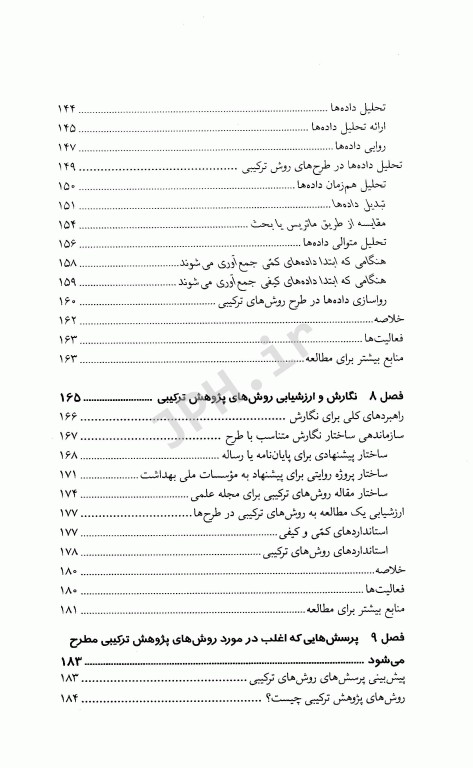 تحلیل داده‌ها ........ ۱۴۴
ارائه تحلیل داده‌ها ........ ۱۴۵
روایی داده‌ها ........ ۱۴۷
تحلیل داده‌ها در طرح‌های روش ترکیبی ........ ۱۴۹
تحلیل هم‌زمان داده‌ها ........ ۱۵۰
تبدیل داده‌ها ........ ۱۵۱
مقایسه از طریق ماتریس یا بحث ........ ۱۵۴
تحلیل متوالی داده‌ها ........ ۱۵۶
هنگامی که ابتدا داده‌های کمّی جمع‌آوری می‌شوند ........ ۱۵۸
هنگامی که ابتدا داده‌های کیفی جمع‌آوری می‌شوند ........ ۱۵۹
رواسازی داده‌ها در طرح روش‌های ترکیبی ........ ۱۶۰
خلاصه ........ ۱۶۲
فعالیت‌ها ........ ۱۶۳
منابع بیشتر برای مطالعه ........ ۱۶۳
فصل ۸ نگارش و ارزشیابی روش‌های پژوهش ترکیبی ........ ۱۶۵
راهبردهای کلی برای نگارش ........ ۱۶۶
سازماندهی ساختار نگارش متناسب با طرح ........ ۱۶۷
ساختار پیشنهادی برای پایان‌نامه یا رساله ........ ۱۶۸
ساختار پروژه روایتی برای پیشنهاد به مؤسسات ملی بهداشت ........ ۱۷۱
ساختار مقاله روش‌های ترکیبی برای مجله علمی ........ ۱۷۴
ارزشیابی یک مطالعه به روش‌های ترکیبی در طرح‌ها ........ ۱۷۷
استانداردهای کمّی و کیفی ........ ۱۷۷
استانداردهای روش‌های ترکیبی ........ ۱۷۸
خلاصه ........ ۱۸۰
فعالیت‌ها ........ ۱۸۰
منابع بیشتر برای مطالعه ........ ۱۸۱
فصل ۹ پرسش‌هایی که اغلب در مورد روش‌های پژوهش ترکیبی مطرح
می‌شود ........ ۱۸۳
پیش‌بینی پرسش‌های روش‌های ترکیبی ........ ۱۸۳
روش‌های پژوهش ترکیبی چیست؟ ........ ۱۸۴
JPH.ir